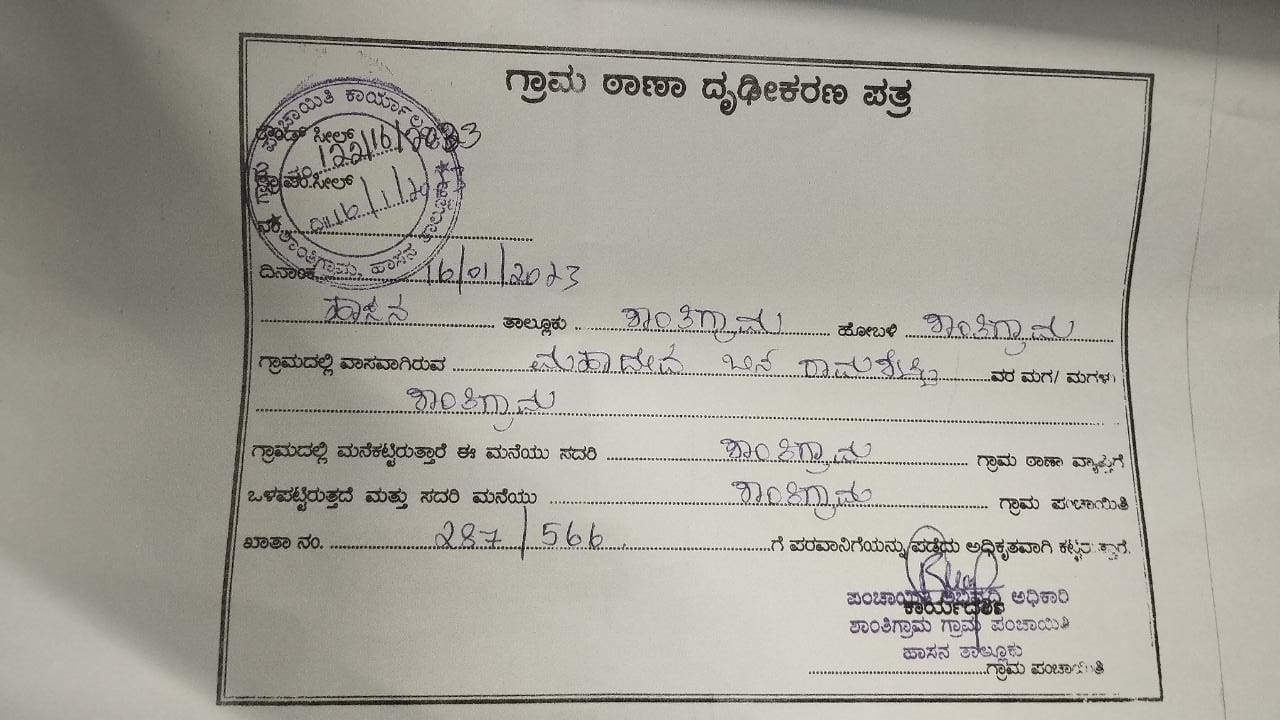 ಗ್ರಾಮ ಠಾಣಾ ದೃಢೀಕರಣ ಪತ್ರ
ಗ್ರಾಮ ಪಂಚಾಯಿತಿ ಕಾರ್ಯಾಲಯ
ಶಾಂತಿಗ್ರಾಮ, ಹಾಸನ ತಾಲ್ಲೂಕು
ರೌಂಡ್ ಸೀಲ್
ದಿನಾಂಕ 16/01/2023
ಹಾಸನ ತಾಲ್ಲೂಕು ಶಾಂತಿಗ್ರಾಮ ಹೋಬಳಿ ಶಾಂತಿಗ್ರಾಮ
ಗ್ರಾಮದಲ್ಲಿ ವಾಸವಾಗಿರುವ ಮಹಾದೇವ ಬಿನ್ ರಾಮಶೆಟ್ಟಿ ವರ ಮಗ/ ಮಗಳು
ಶಾಂತಿಗ್ರಾಮ
ಗ್ರಾಮದಲ್ಲಿ ಮನೆಕಟ್ಟಿರುತ್ತಾರೆ ಈ ಮನೆಯು ಸದರಿ ಶಾಂತಿಗ್ರಾಮ ಗ್ರಾಮ ಠಾಣಾ ವ್ಯಾಪ್ತಿಗೆ
ಒಳಪಟ್ಟಿರುತ್ತದೆ ಮತ್ತು ಸದರಿ ಮನೆಯು ಶಾಂತಿಗ್ರಾಮ ಗ್ರಾಮ ಪಂಚಾಯಿತಿ
ಖಾತಾ ನಂ. 287/566 ಗೆ ಪರವಾನಿಗೆಯನ್ನು ಪಡೆದು ಅಧಿಕೃತವಾಗಿ
ಪಂಚಾಯಿತಿ ಅಭಿವೃದ್ಧಿ ಅಧಿಕಾರಿ
ಕಾರ್ಯದರ್ಶಿ
ಶಾಂತಿಗ್ರಾಮ ಗ್ರಾಮ ಪಂಚಾಯಿತಿ
ಹಾಸನ ತಾಲ್ಲೂಕು
ಗ್ರಾಮ ಪಂಚಾಯಿತಿ